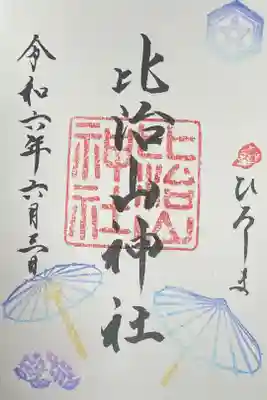 ひろしま
比治山神社
比治山
神社
令和六年六月三日